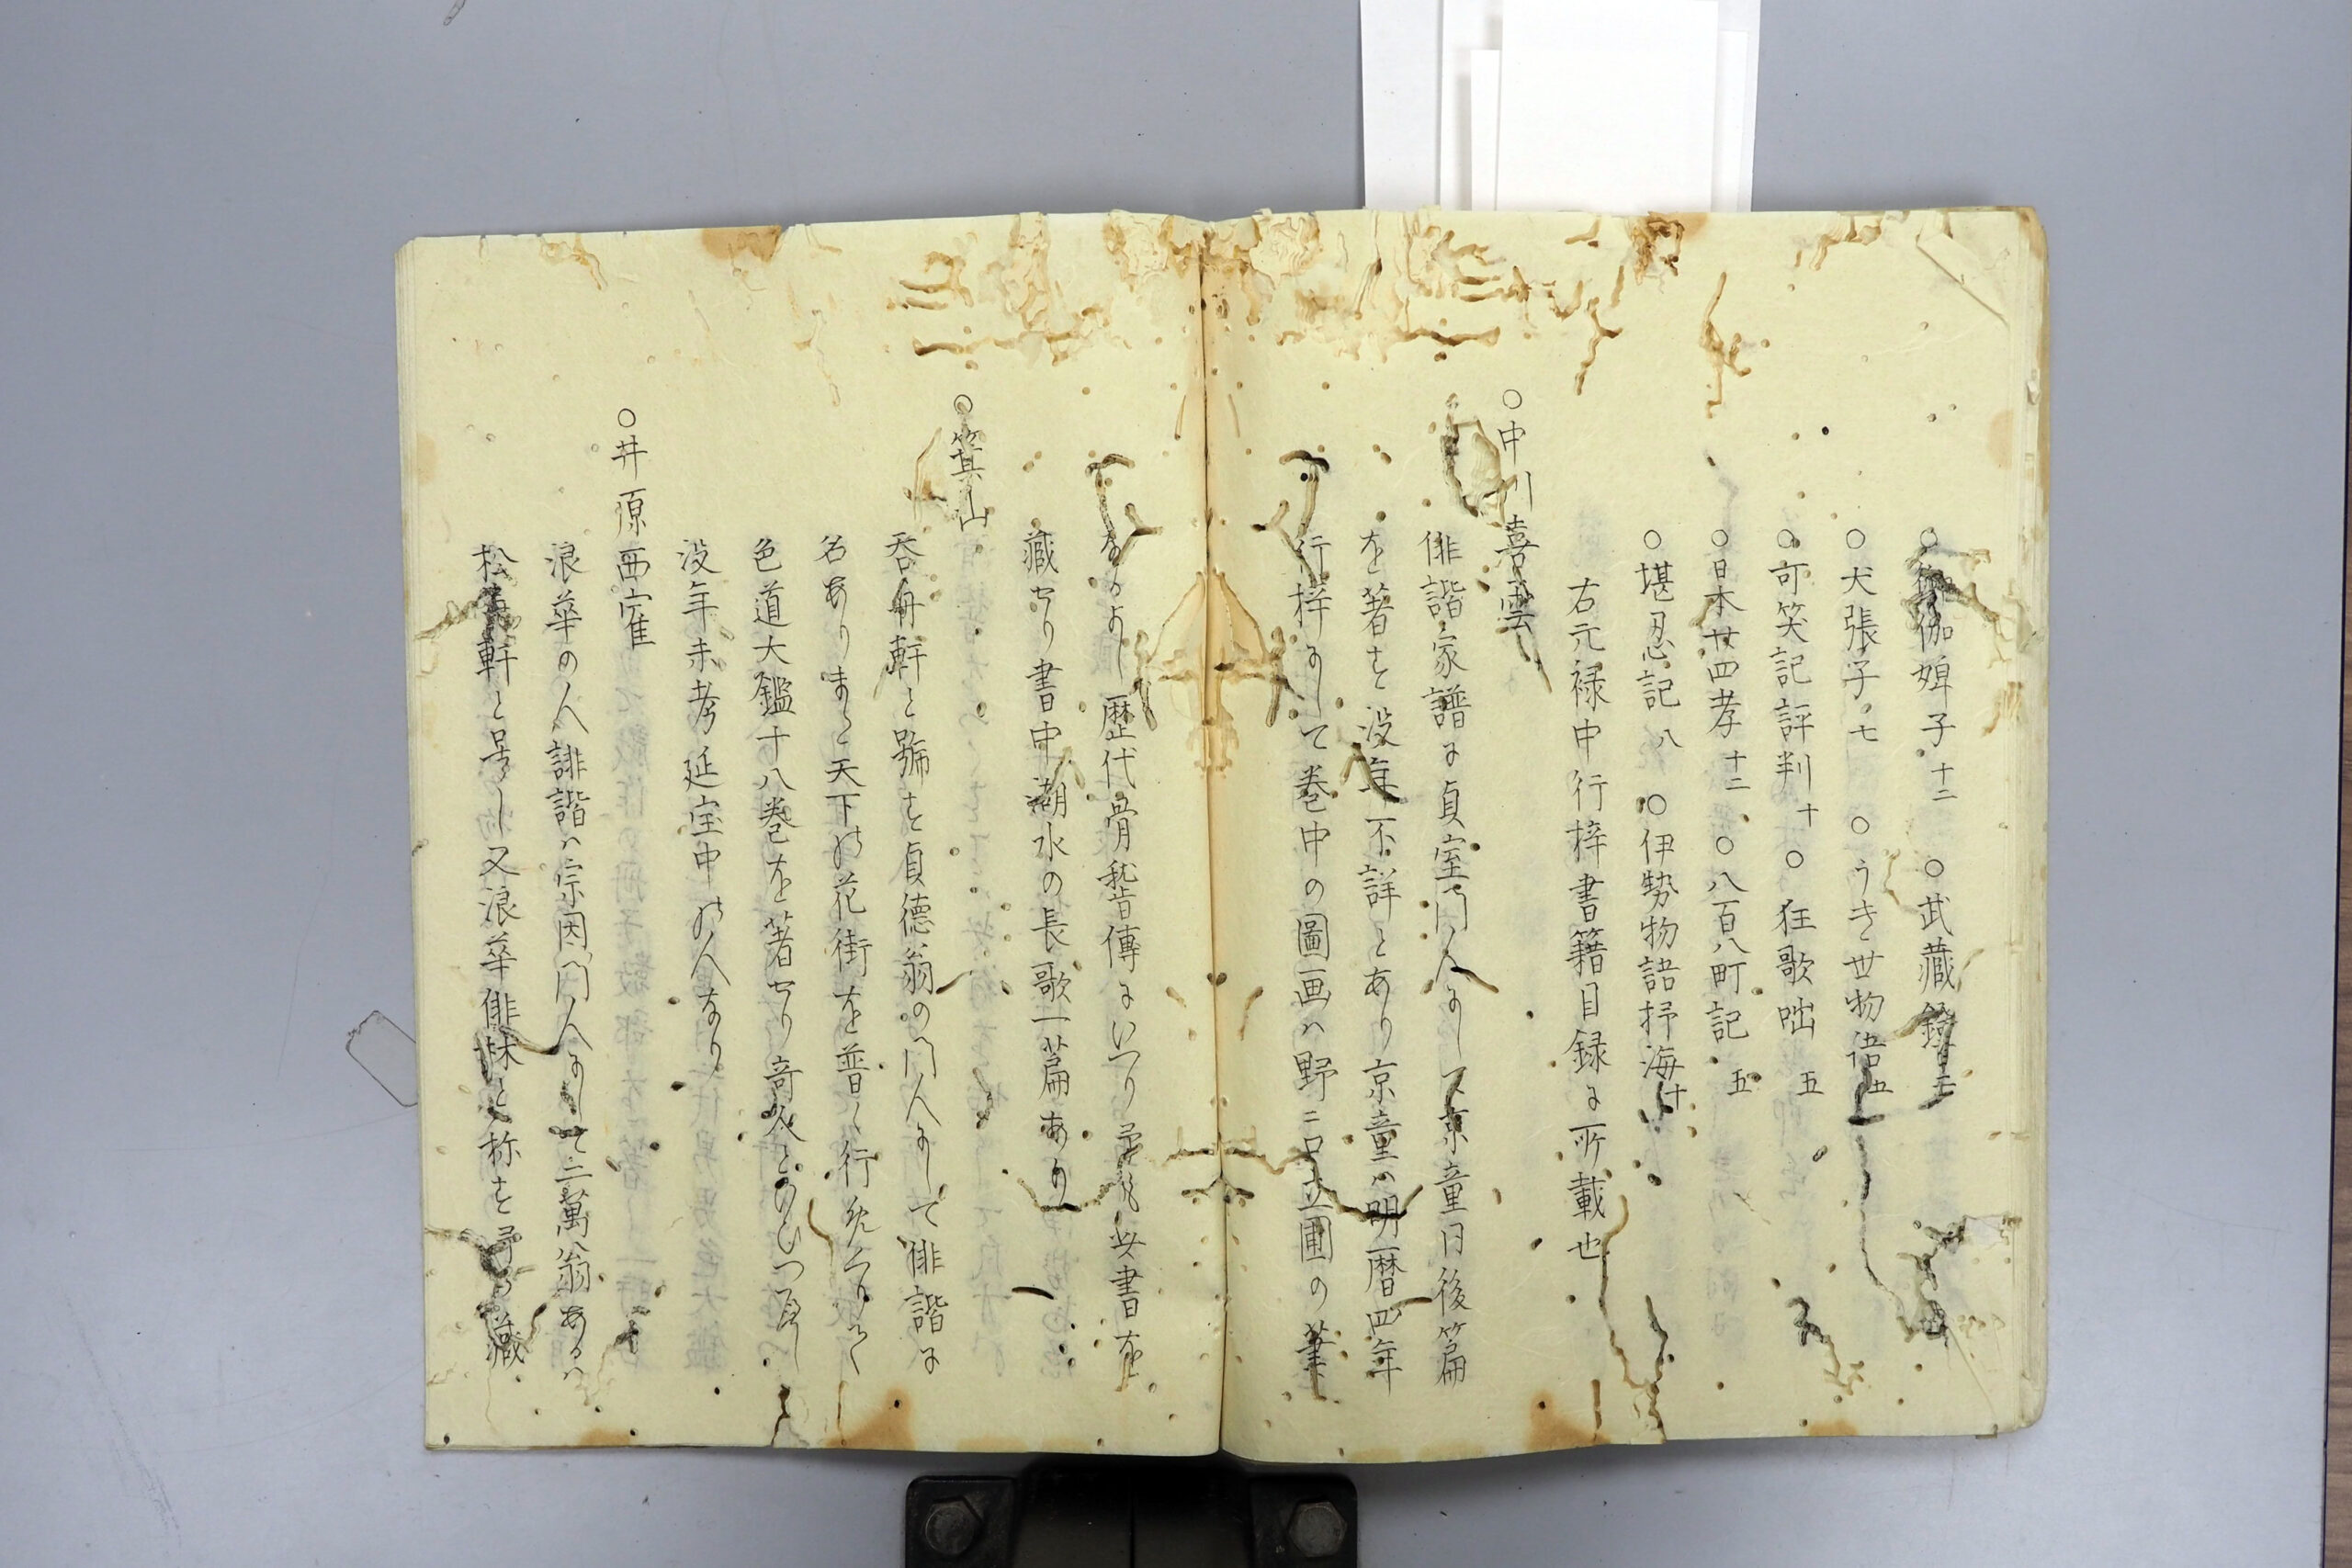 ○御伽婢子十二　○武藏鐙二
○犬張子七　○うき世物語五
○可笑記評判十　○狂歌咄五
○日本廿四孝十二　○八百八町記五
○堪忍記八　○伊勢物語抒海廿
右元禄中行梓書籍目録に所載也
○中川喜雲
俳諧家譜に貞室門人にして京童同後篇
を著す没年不詳とあり京童ハ明暦四年
行梓にして巻中の圖画ハ野ゝ口立圃の筆
なるよし歴代滑稽傳にいへり予も此書を
藏せり書中湖水の長歌一篇あり
○箕山
呑舟軒と號す貞徳翁の門人にして俳諧に
名ありまた天下の花街を普く行
色道大鑑十八巻を著せり奇人とのいつべし
没年未考延宝中の人なり
○井原西寉
浪華の人誹諧ハ宗因門人にして二萬翁あるハ
松壽軒と号し又浪華俳林と称す予か藏